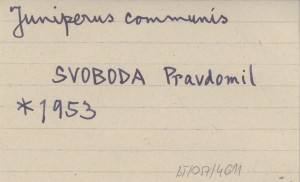 Juniperus communis
SVOBODA Pravdomil
*1953
LT/017/4611